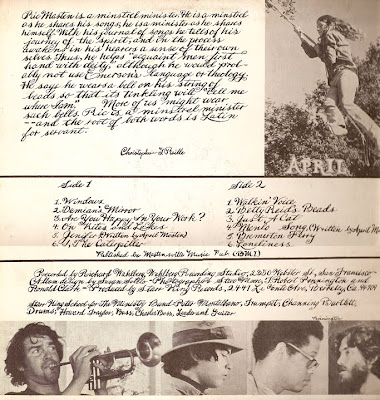 Ric Masten is a minstrel minister. He is a minstrel
as he shares his songs; he is a minister as he shares
himself. With his journal of songs he tells of his
journey of the Spirit, and in the process
awakens in his hearers a sense of their own
selves. Thus, he helps "acquaint men first
hand with deity," although he would prob-
ably not use Emerson's language or theology.
He says he wears a bell on his string of
beads so that its tinkling will "tell me
where I am." More of us might wear
such bells. Ric is a minstrel minister
--and the root of both words is Latin
for servant.
Christopher
APRIL
Side 1
1. Windows
2. Demian's Mirror
3. Are You Happy In Your Work?
4. On Kites and Lakes
5. (Written by April Masten)
6. I, The Caterpillar
Side 2
1. Walkin' Voice
2. Betty Reid's Beads
3. Just A Cat
4. Menlo Song (Written by April
5. Bremerton Ferry
6. Loneliness
Published by Mastensville Music Pub. (BMI)
Recorded by Richard Wahlberg, Wahlberg Recording Studio, 2330 Webster St., San Francisco
Album design by Susan Photographers Steve Robert Pennington and
Ronald Clark - Produced by Starr King Records, 2441 Le Conte Ave., Berkeley, Ca.
Starr King School for The Ministry Band - Peter Trumpet; Channing Bartlett,
Drums; Howard Bass; Charles Boss, Lead Guitar
Pennington